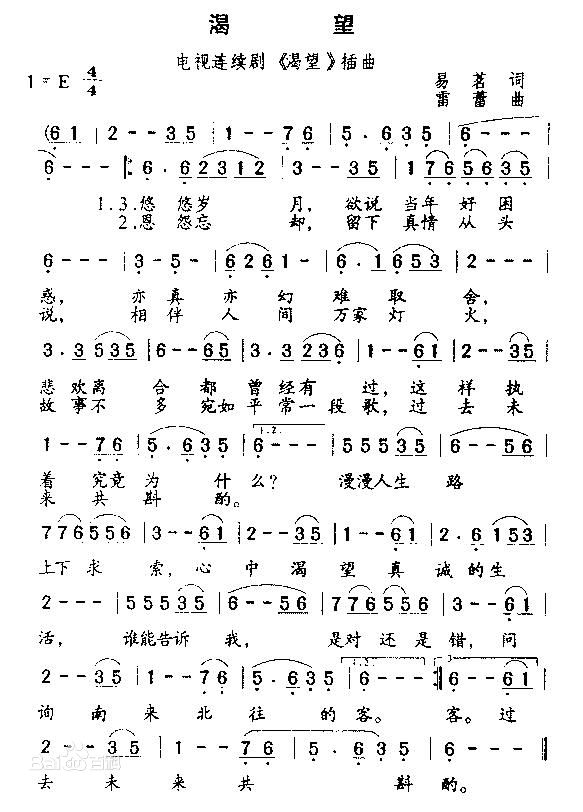 渴 望
电视连续剧《渴望》插曲
1=E 4/4
易茗 词
雷蕾 曲
(6 1 | 2 - - 3 5 | 1 - - 7 6 | 5 . 6 3 5 | 6 - - - |
6 - - ‖: 6 . 6 2 3 1 2 | 3 - - 3 5 | 1 7 6 5 6 3 5 |
1.3.悠 悠岁 月, 欲说 当年 好 困
2.恩 怨忘 却, 留下 真情 从 头
6 - - - | 3 - 5 - | 6 2 6 1 - | 6 . 1 6 5 3 | 2 - - - |
惑, 亦真 亦 幻 难 取 舍,
说, 相伴 人 间 万家 灯 火,
3 . 3 5 3 5 | 6 - - 6 5 | 3 . 3 2 3 6 | 1 - - 6 1 | 2 - - 3 5 |
悲 欢离 合 都 曾 经有 过, 这 样 执
故 事不 多 宛如 平 常一 段 歌, 过 去 未
1 - - 7 6 | 5 . 6 3 5 | 1.2. 6 - - - | 5 5 5 3 5 | 6 - - 5 6 |
着 究竟 为 什 么? 漫漫人生 路
来 共 斟 酌。
7 7 6 5 5 6 | 3 - - 6 1 | 2 - - 3 5 | 1 - - 6 1 | 2 . 6 1 5 3 |
上下 求 索, 心 中 渴 望 真 诚 的 生
2 - - - | 5 5 5 3 5 | 6 - - 5 6 | 7 7 6 5 5 6 | 3 - - 6 1 |
活, 谁能告诉 我, 是对 还 是 错, 问
2 - - 3 5 | 1 - - 7 6 | 5 . 6 3 5 | 1.2. 6 - - - :‖ 6 - - 6 1 |
询 南 来 北 往 的 客。 客。 过
2 - - 3 5 | 1 - - 7 6 | 5 . 6 3 5 | 6 - - - | 6 - - - ‖
去 未 来 共 斟 酌。
Bai 百科